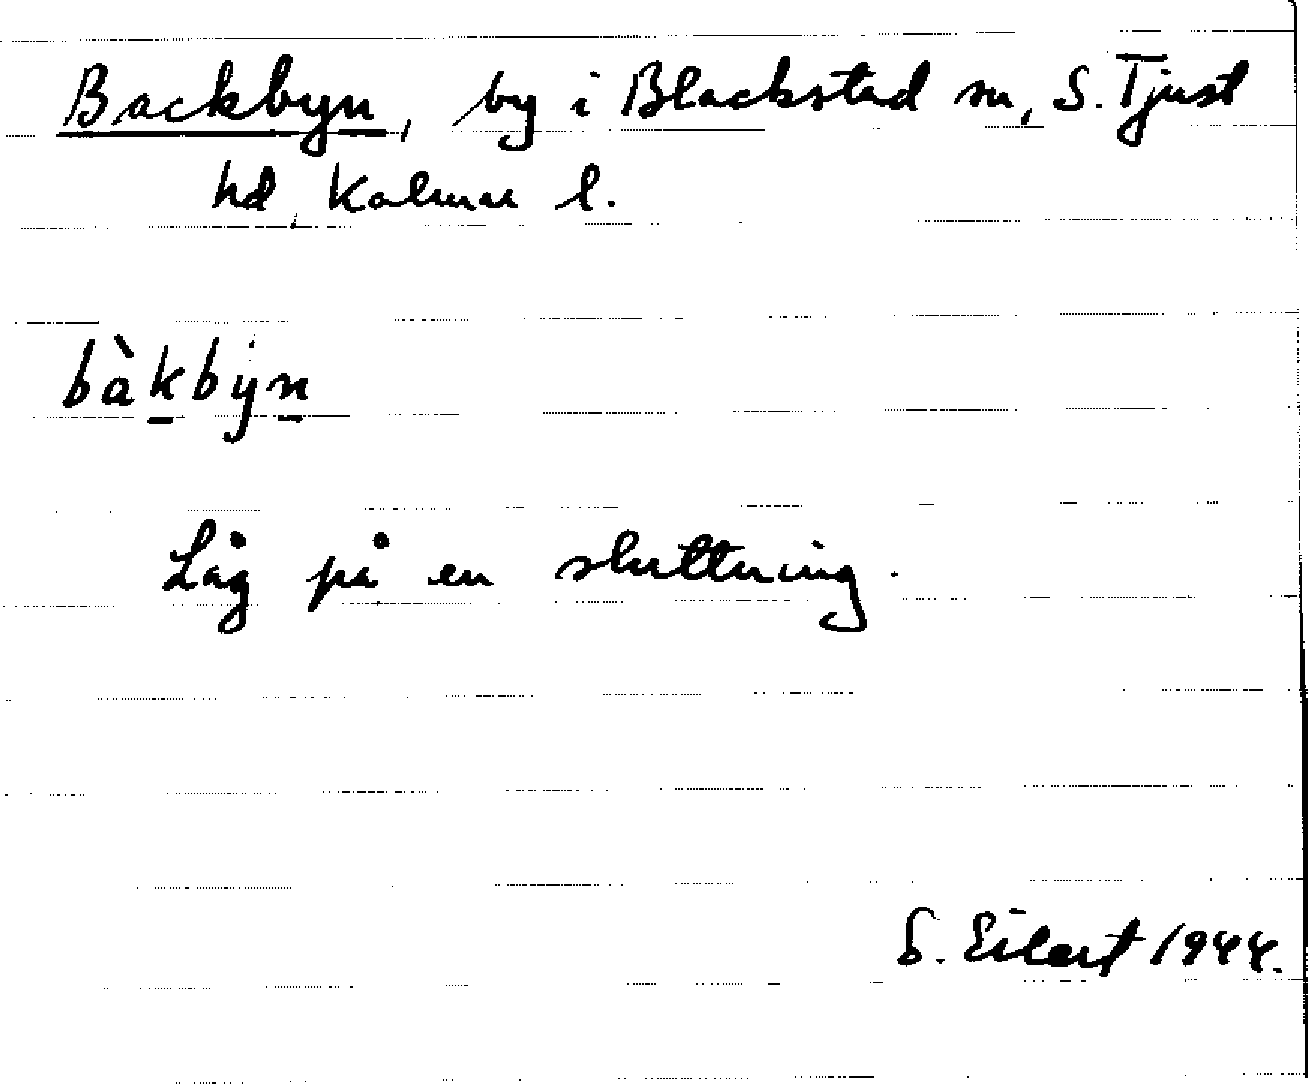 Backbyn, by i Blackstad sn, S. Tjust
hd, Kalmar l.
bàkby̍n
Låg på en sluttning.
S. Eilert 1944.